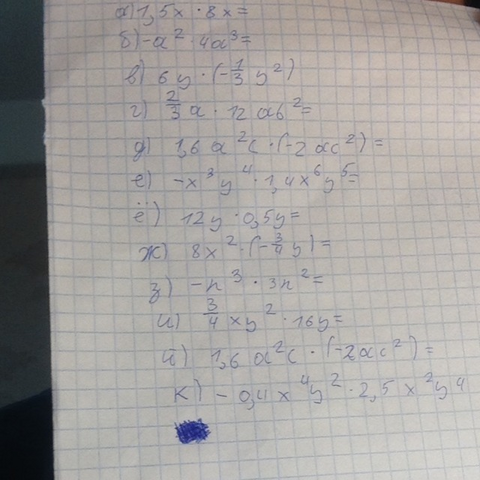 а) 1,5x · 8x =
б) -a² · 4a³ =
в) 6y · (-1/3 y²)
г) 2/3 a · 12 ab² =
д) 1,6 a²c · (-2 ac²) =
е) -x³y⁴ · 1,4x⁶y⁵ =
ё) 12y · 0,5y =
ж) 8x² · (-3/4 y) =
з) -n³ · 3n² =
и) 3/4 xy² · 16y =
й) 1,6 a²c · (-2ac²) =
к) -0,4x⁴y² · 2,5x²y⁴